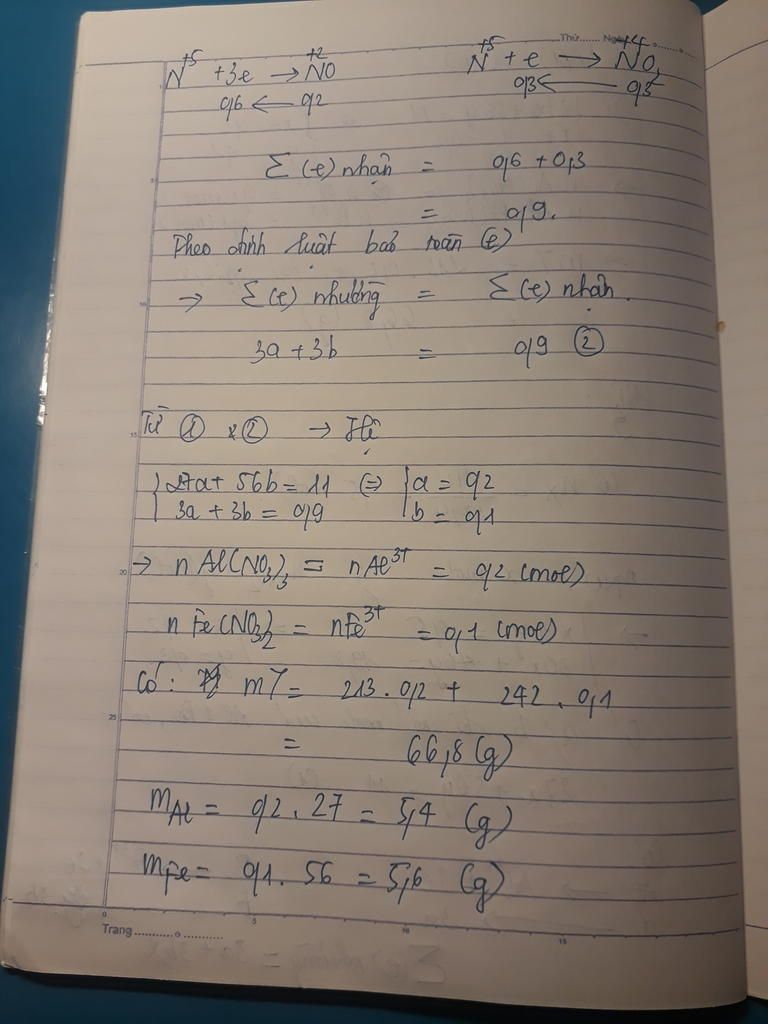 Thứ....... Ngày
N⁺⁵ +3e → N⁺²O N⁺⁵ + e → N⁺⁴O₂
0,6 ← 0,2 0,3 ← 0,3
Σ(-e) nhận = 0,6 + 0,3
= 0,9.
Theo định luật bảo toàn (e)
→ Σ(e) nhường = Σ(e) nhận.
3a + 3b = 0,9 ②
Từ ① & ② → Hệ
{27a + 56b = 11 ⇔ {a = 0,2
3a + 3b = 0,9 b = 0,1
→ n Al(NO₃)₃ = n Al³⁺ = 0,2 (mol)
n Fe(NO₃)₂ = nFe³⁺ = 0,1 (mol)
Có: mY = 213 . 0,2 + 242 . 0,1
= 66,8 (g)
mAl = 0,2 . 27 = 5,4 (g)
mFe = 0,1 . 56 = 5,6 (g)
0 5 10 15
Trang